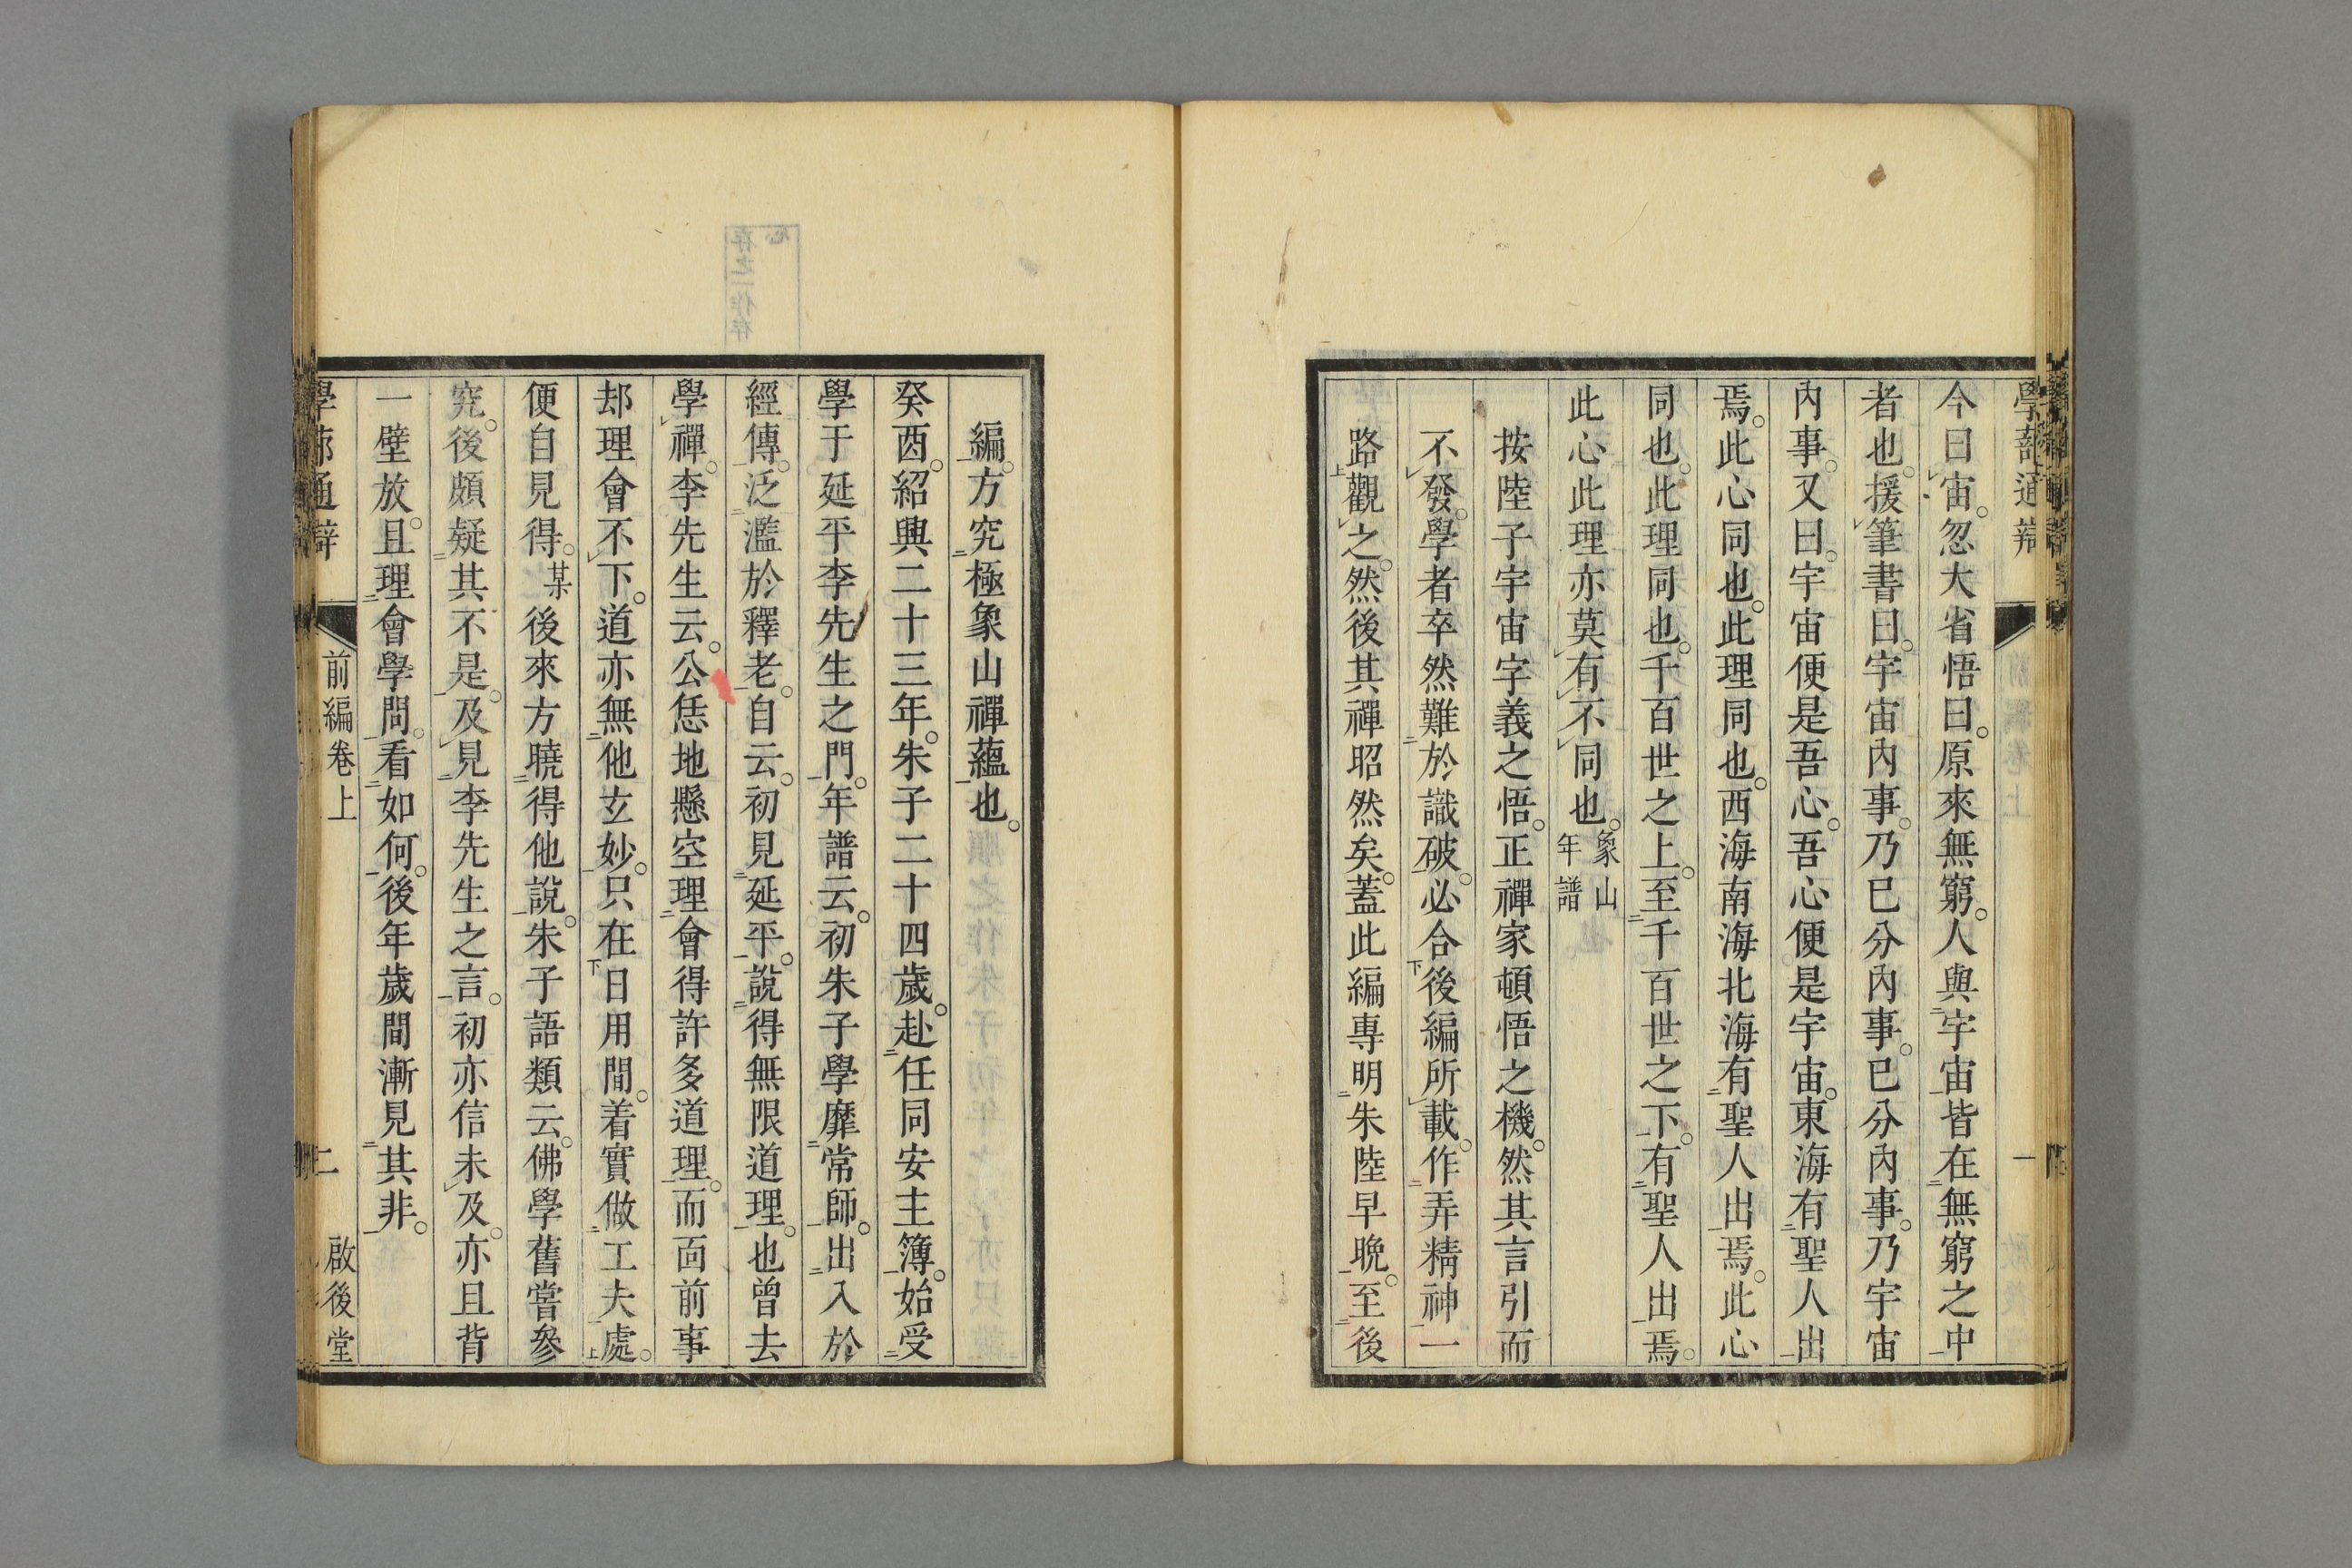 學蔀通辨
一
今曰宙。忽大省悟曰。原來無窮。人與宇宙皆在無窮之中
者也。援筆書曰。宇宙內事。乃已分內事。已分內事。乃宇宙
內事。又曰。宇宙便是吾心。吾心便是宇宙。東海有聖人出
焉。此心同也。此理同也。西海南海北海有聖人出焉。此心
同也。此理同也。千百世之上。至千百世之下。有聖人出焉。
此心此理亦莫有不同也。象山年譜
按陸子宇宙字義之悟。正禪家頓悟之機。然其言引而
不發。學者卒然難於識破。必合後編所載。作弄精神一
路觀之。然後其禪昭然矣。蓋此編專明朱陸早晚。至後
編。方究極象山禪蘊也。
癸酉。紹興二十三年。朱子二十四歲。赴任同安主簿。始受
學于延平李先生之門。年譜云。初朱子學靡常師。出入於
經傳。泛濫於釋老。自云。初見延平。說得無限道理。也曾去
學禪。李先生云。公恁地懸空理會得許多道理。而面前事
却理會不下。道亦無他玄妙。只在日用間。着實做工夫處。
便自見得。某後來方曉得他說。朱子語類云。佛學舊嘗參
究。後頗疑其不是。及見李先生之言。初亦信未及。亦且背
一壁放。且理會學問。看如何。後年歲間漸見其非。
學蔀通辯
前編卷上
二
啟後堂